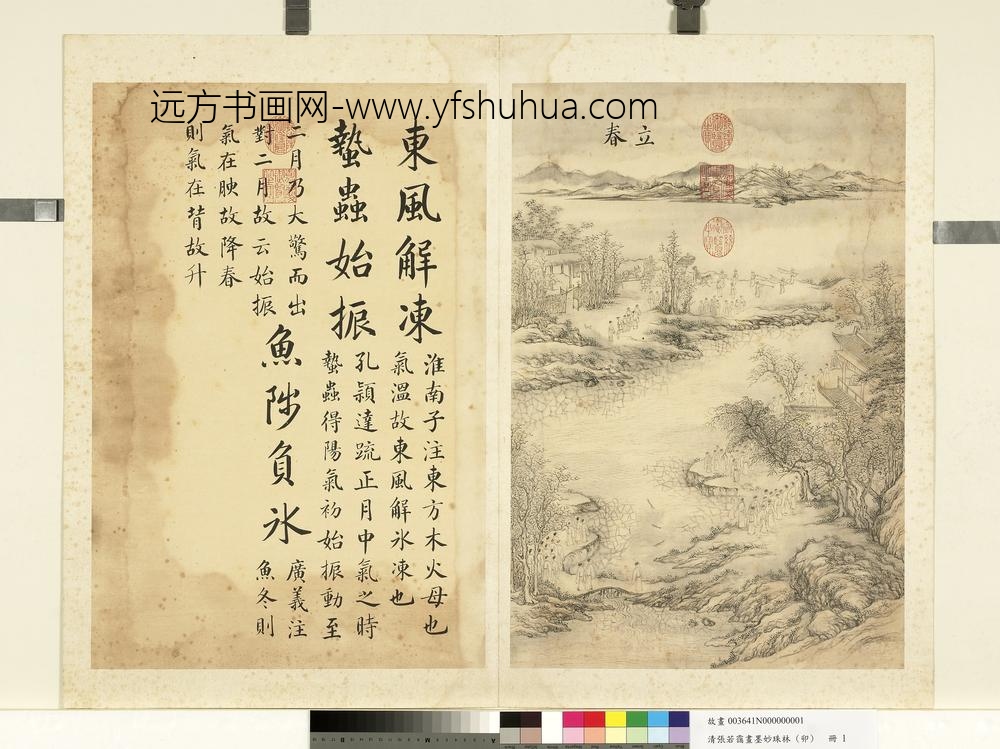 远方书画网-www.yfshuhua.com
立春
東風解凍
淮南子注東方木火母也
氣溫故東風解氷凍也
蟄蟲始振
孔穎達疏正月中氣之時
蟄蟲得陽氣初始振動至
二月乃大驚而出
對二月故云始振
魚陟負氷
廣義注
魚冬則
氣在腴故降春
則氣在背故升
故畫 003641N000000001
清張若靄畫墨妙珠林（卯） 冊 1